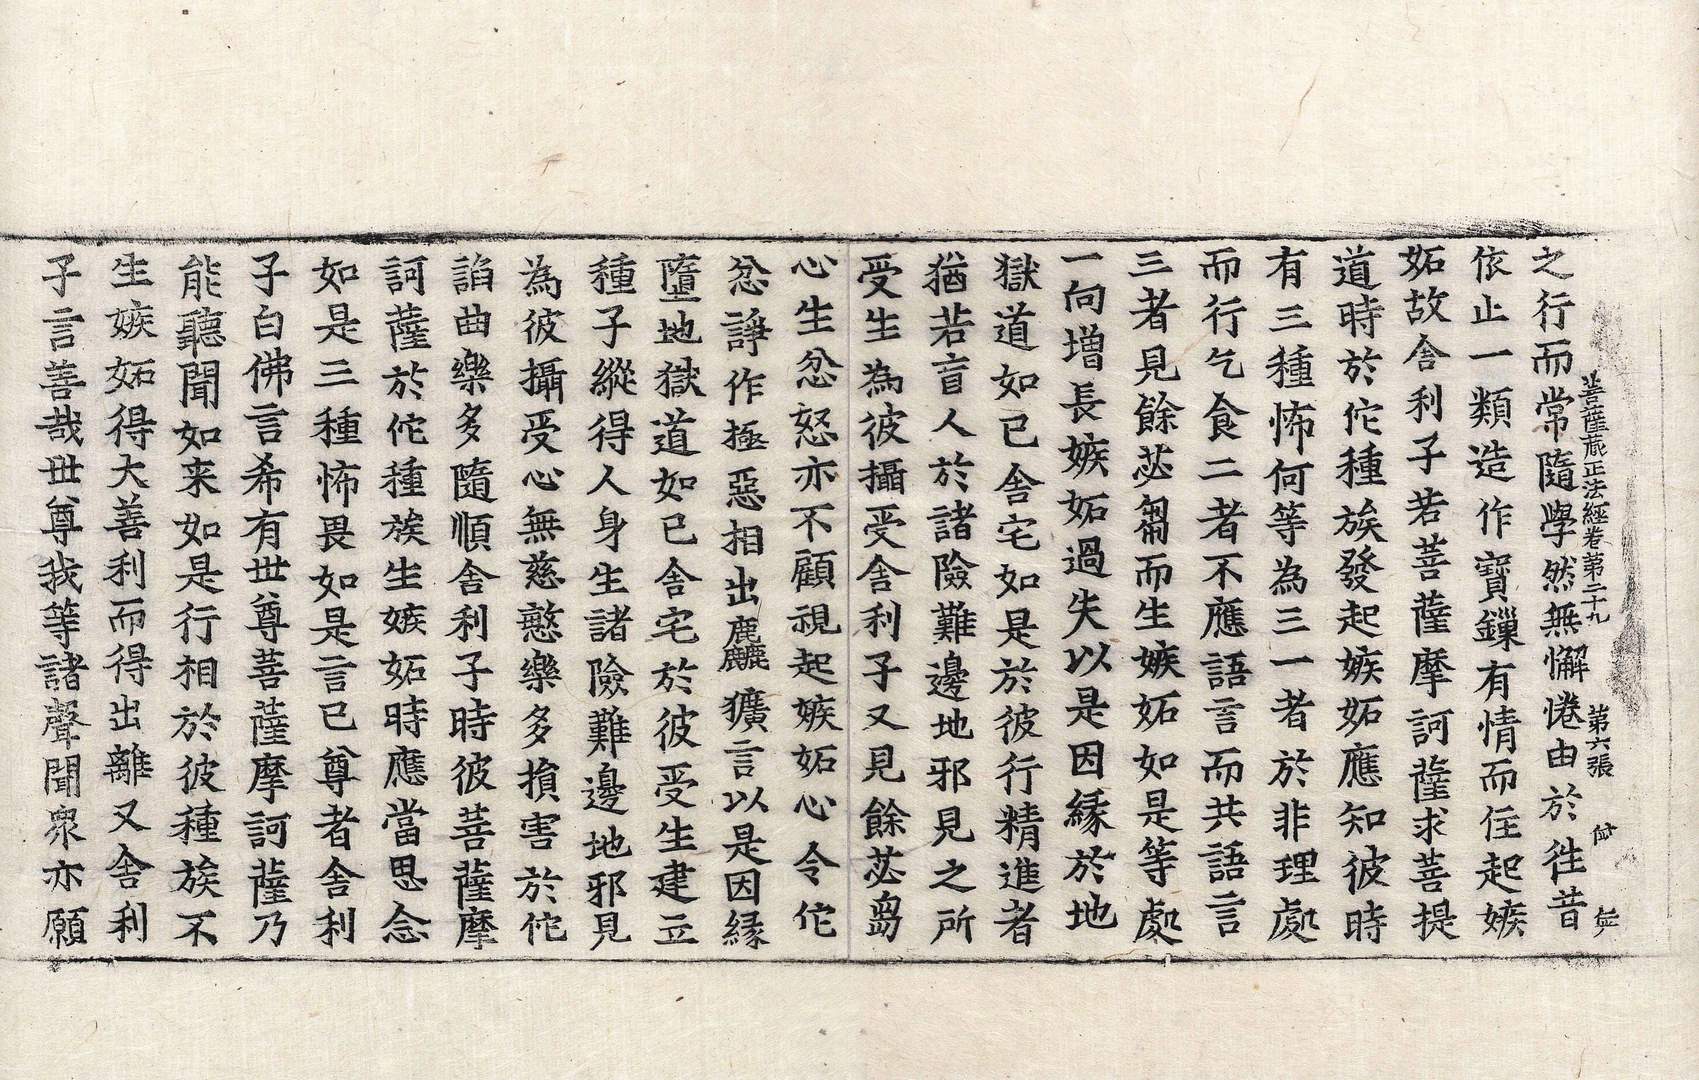 菩薩藏正法經卷第二十九　第六張
之行而常隨學然無懈惓由於徃昔
依止一類造作寶鏁有情而住起嫉
妬故舍利子若菩薩摩訶薩求菩提
道時於佗種族發起嫉妬應知彼時
有三種怖何等為三一者於非理處
而行乞食二者不應語言而共語言
三者見餘苾芻而生嫉妬如是等處
一向增長嫉妬過失以是因縁於地
獄道如已舍宅如是於彼行精進者
猶若盲人於諸險難邊地邪見之所
受生為彼攝受舍利子又見餘苾芻
心生忿怒亦不顧視起嫉妬心令佗
忿諍作極惡相出麁獷言以是因縁
墮地獄道如已舍宅於彼受生建立
種子縱得人身生諸險難邊地邪見
為彼攝受心無慈愍樂多損害於佗
諂曲樂多隨順舍利子時彼菩薩摩
訶薩於佗種族生嫉妬時應當思念
如是三種怖畏如是言已尊者舍利
子白佛言希有世尊菩薩摩訶薩乃
能聽聞如来如是行相於彼種族不
生嫉妬得大善利而得出離又舍利
子言善哉世尊我等諸聲聞衆亦願